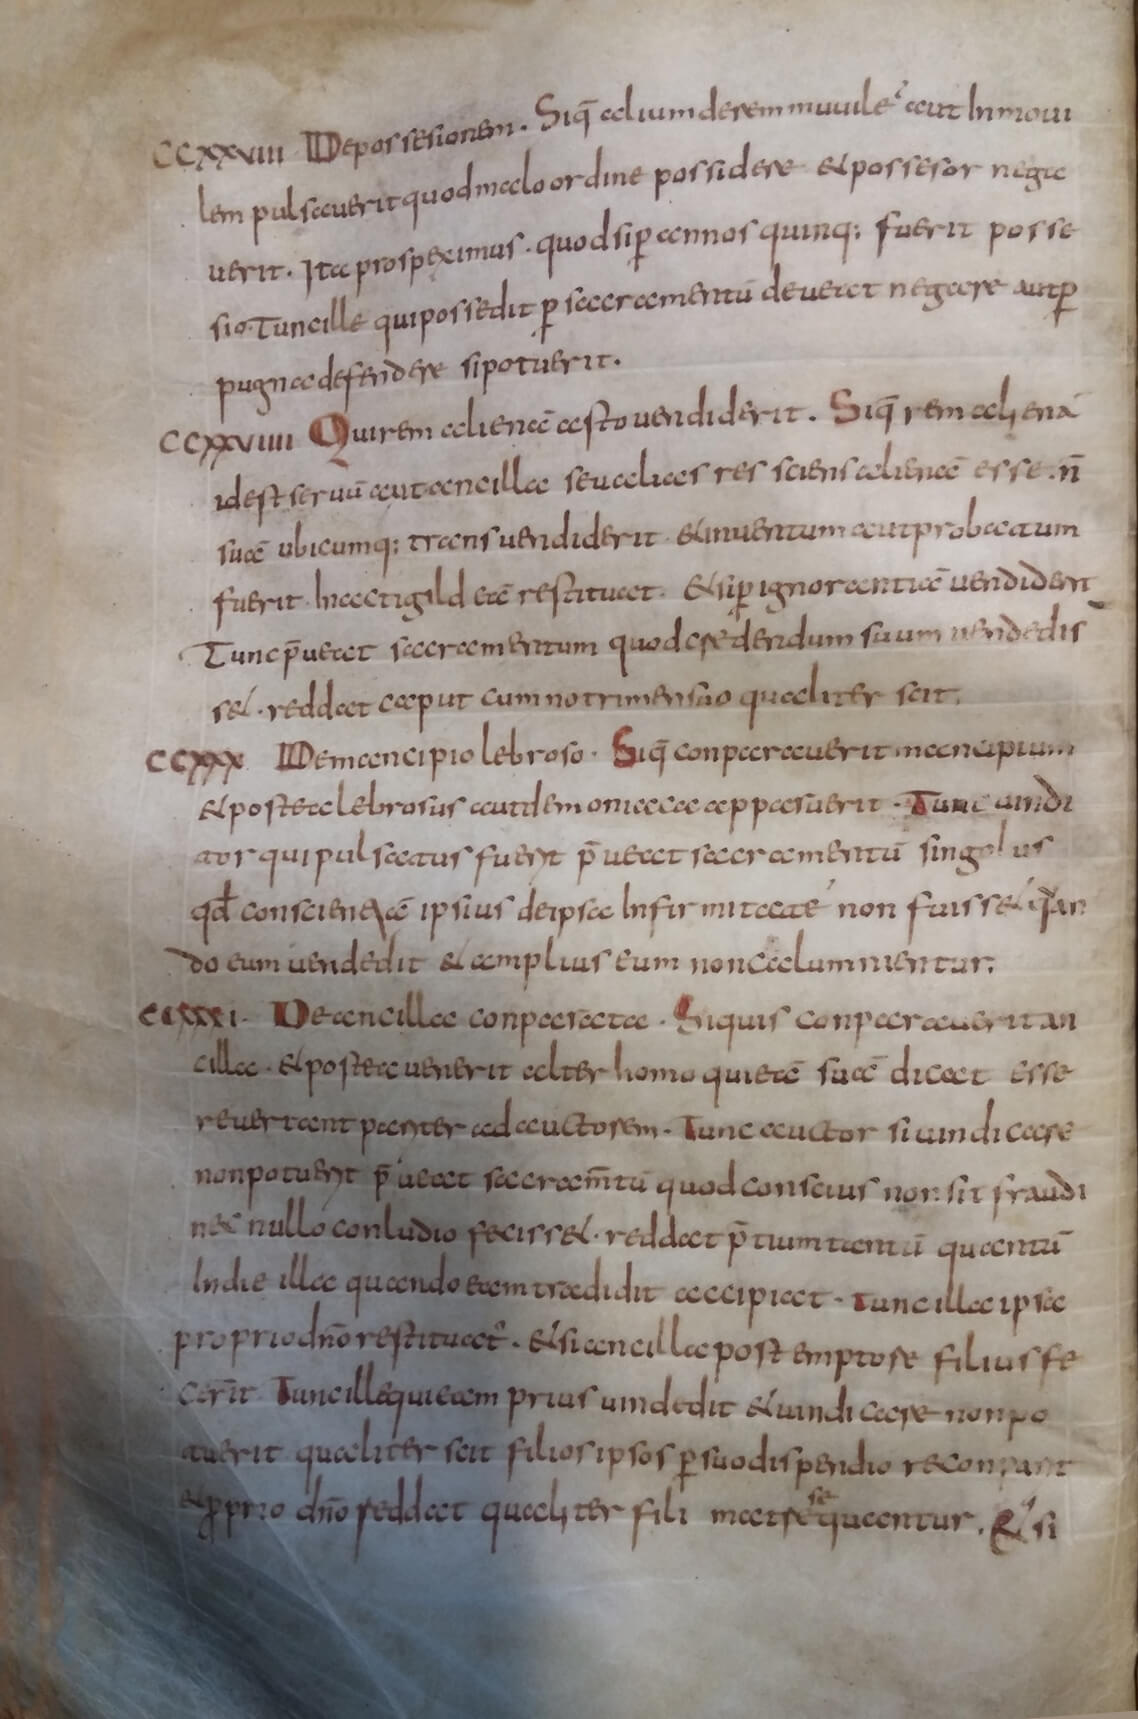 CCXXVIII De possesionem. Siq̄ alium de rem muuile aut Inmoui
lem pulsauerit quod malo ordine possidere et possesor nega
uerit. Ita prospeximus. quod si ꝑ annos quinq; fuerit posse
sio. Tunc ille qui possedit ꝑ sacramentū deueat negare aut ꝑ
pugna defendere si potuerit.
CCXXVIIII Qui rem alienā asto uendiderit. Siq̄ rem alienā
id est seruū aut ancilla seu alias res sciens alienā esse. n̄
suā ubicumq; transuendiderit et inuentum aut probatum
fuerit. In actigild eā restituat. Et si ꝑ ignorantiā uendiderit
Tunc p̄ueat sacramentum quod credendum suum uendedis
set. reddat caput cum notrimen suo qualiter scit.
CCXXX De mancipio lebroso. Siq̄ conparauerit mancipium
et postea lebrosus aut demoniaca apparuerit. Tunc uindi
tor qui pulsatus fuerit p̄ueat sacramentū singolus
qđ conscientiā ipsius de ipsa Infirmitate non fuisset qn̄an
do eum uendedit et amplius eum non calumnientur.
CCXXXI. De ancilla conparata. Siquis conparauerit an
cilla. et postea uenerit alter homo qui eā suā dicat esse
reuertant pariter ad auctorem. Tunc auctor si uindicare
non potuerit p̄ueat sacram̄tū quod conscius non sit fraudi
nec nullo conludio fecisset. reddat p̄tium tantū quantū
In die illa quando eam tradidit accipiat. Tunc illa ipsa
proprio dn̄o restituat. Et si ancilla post emptore filius fe
cerit Tunc ille qui eam prius uindedit et uindicare non po
tuerit qualiter scit filios ipsos ꝑ suo dispendio reconparit
et ꝓprio dn̄o reddat qualiter fili matre sequantur. Et si